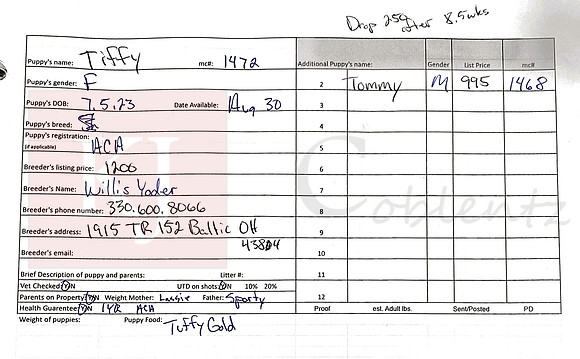 Drop 250 after 8.5wks
Puppy's name: Tiffy mc#: 1472
Additional Puppy's name: Gender List Price mc#
Puppy's gender: F
2 Tommy M 995 1468
Puppy's DOB: 7.5.23 Date Available: Aug 30
3
Puppy's breed:
4
Puppy's registration:
(if applicable) ACA
5
Breeder's listing price: 1200
6
Breeder's Name: Willis Yoder
7
Breeder's phone number: 330.600.8066
8
Breeder's address: 1915 TR 152 Baltic OH
9
43804
Breeder's email:
10
Brief Description of puppy and parents: Litter #:
11
Vet Checked Y/N UTD on shots: Y/N 10% 20%
Parents on Property Y/N Weight Mother: Lassie Father: Sporty
12
Health Guarentee Y/N 1YR ACA
Proof est. Adult lbs. Sent/Posted PD
Weight of puppies: Puppy Food: Tuffy Gold
Coblentz